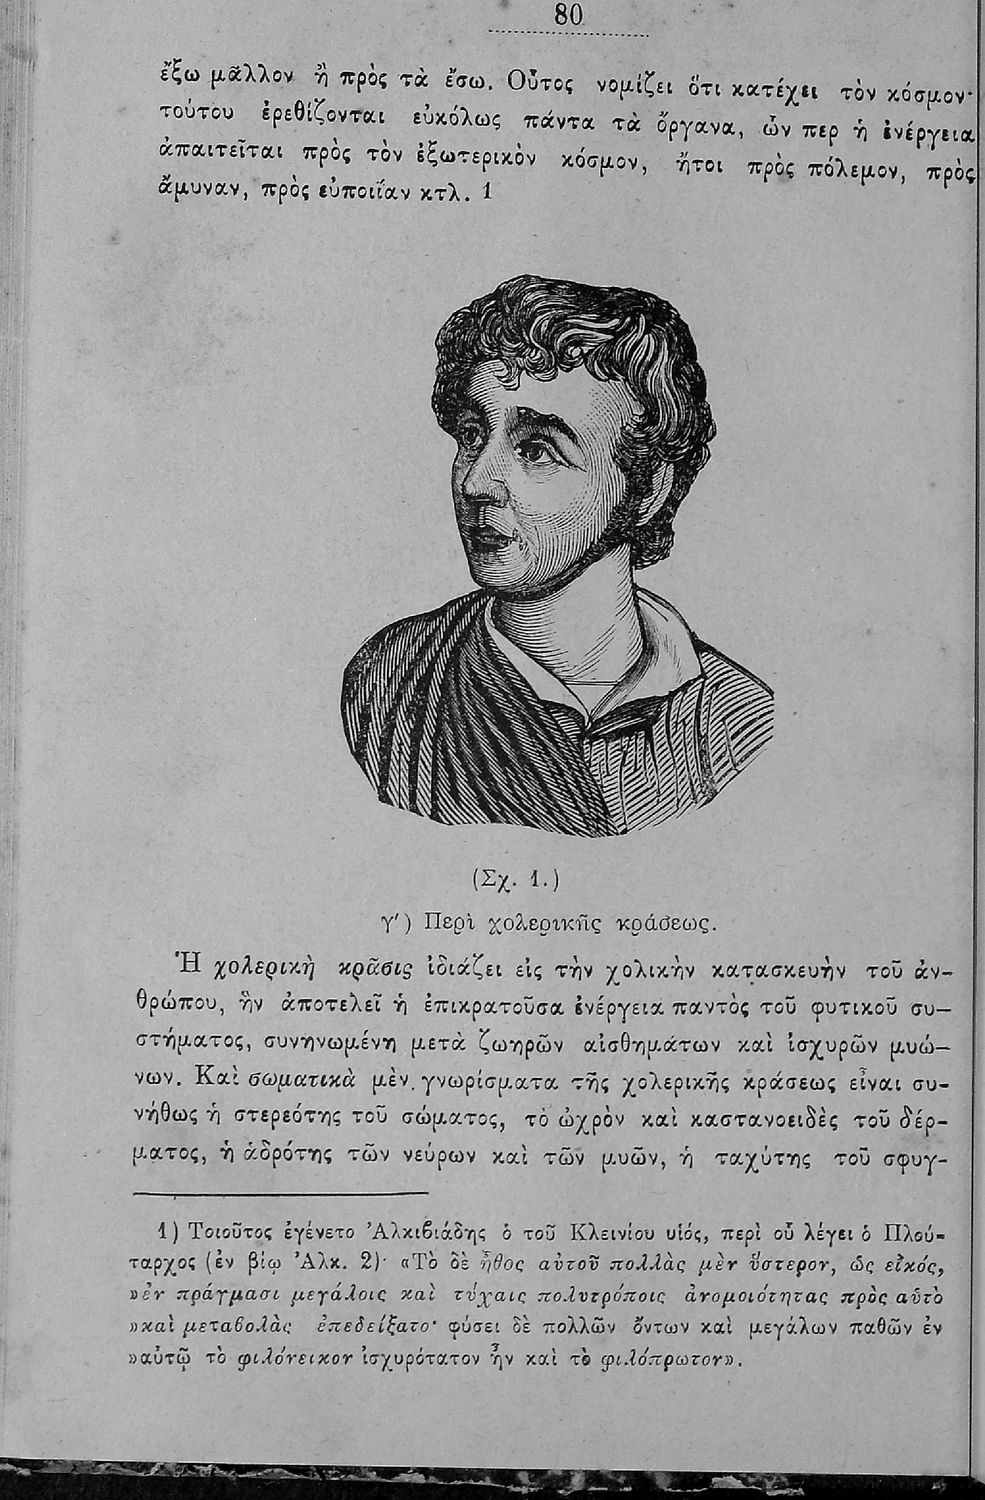 80
ἔξω μᾶλλον ἢ πρὸς τὰ ἔσω. Οὗτος νομίζει ὅτι κατέχει τὸν κόσμον·
τούτου ἐρεθίζονται εὐκόλως πάντα τὰ ὄργανα, ὧν περ ἡ ἐνέργεια
ἀπαιτεῖται πρὸς τὸν ἐξωτερικὸν κόσμον, ἤτοι πρὸς πόλεμον, πρὸς
ἄμυναν, πρὸς εὐποιΐαν κτλ. 1
(Σχ. 1.)
γ′) Περὶ χολερικῆς κράσεως.
Ἡ χολερικὴ κρᾶσις ἰδιάζει εἰς τὴν χολικὴν κατασκευὴν τοῦ ἀν-
θρώπου, ἣν ἀποτελεῖ ἡ ἐπικρατοῦσα ἐνέργεια παντὸς τοῦ φυτικοῦ συ-
στήματος, συνηνωμένη μετὰ ζωηρῶν αἰσθημάτων καὶ ἰσχυρῶν μυώ-
νων. Καὶ σωματικὰ μὲν γνωρίσματα τῆς χολερικῆς κράσεως εἶναι συ-
νήθως ἡ στερεότης τοῦ σώματος, τὸ ὠχρὸν καὶ καστανοειδὲς τοῦ δέρ-
ματος, ἡ ἁδρότης τῶν νεύρων καὶ τῶν μυῶν, ἡ ταχύτης τοῦ σφυγ-
1) Τοιοῦτος ἐγένετο Ἀλκιβιάδης ὁ τοῦ Κλεινίου υἱός, περὶ οὗ λέγει ὁ Πλού-
ταρχος (ἐν βίῳ Ἀλκ. 2)· «Τὸ δὲ ἦθος αὐτοῦ πολλὰς μὲν ὕστερον, ὡς εἰκός,
»ἐν πράγμασι μεγάλοις καὶ τύχαις πολυτρόποις ἀνομοιότητας πρὸς αὑτὸ
»καὶ μεταβολὰς ἐπεδείξατο· φύσει δὲ πολλῶν ὄντων καὶ μεγάλων παθῶν ἐν
»αὐτῷ τὸ φιλόνεικον ἰσχυρότατον ἦν καὶ τὸ φιλόπρωτον».